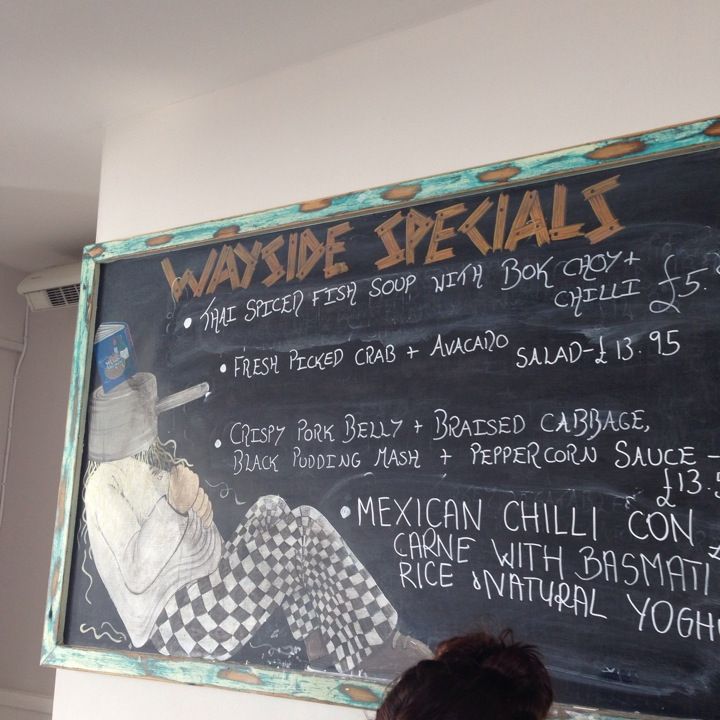 WAYSIDE SPECIALS
• THAI SPICED FISH SOUP WITH BOK CHOY +
CHILLI £5.
• FRESH PICKED CRAB + AVACADO SALAD - £13.95
• CRISPY PORK BELLY + BRAISED CABBAGE,
BLACK PUDDING MASH + PEPPERCORN SAUCE -
£13.5
• MEXICAN CHILLI CON
CARNE WITH BASMATI
RICE & NATURAL YOGH